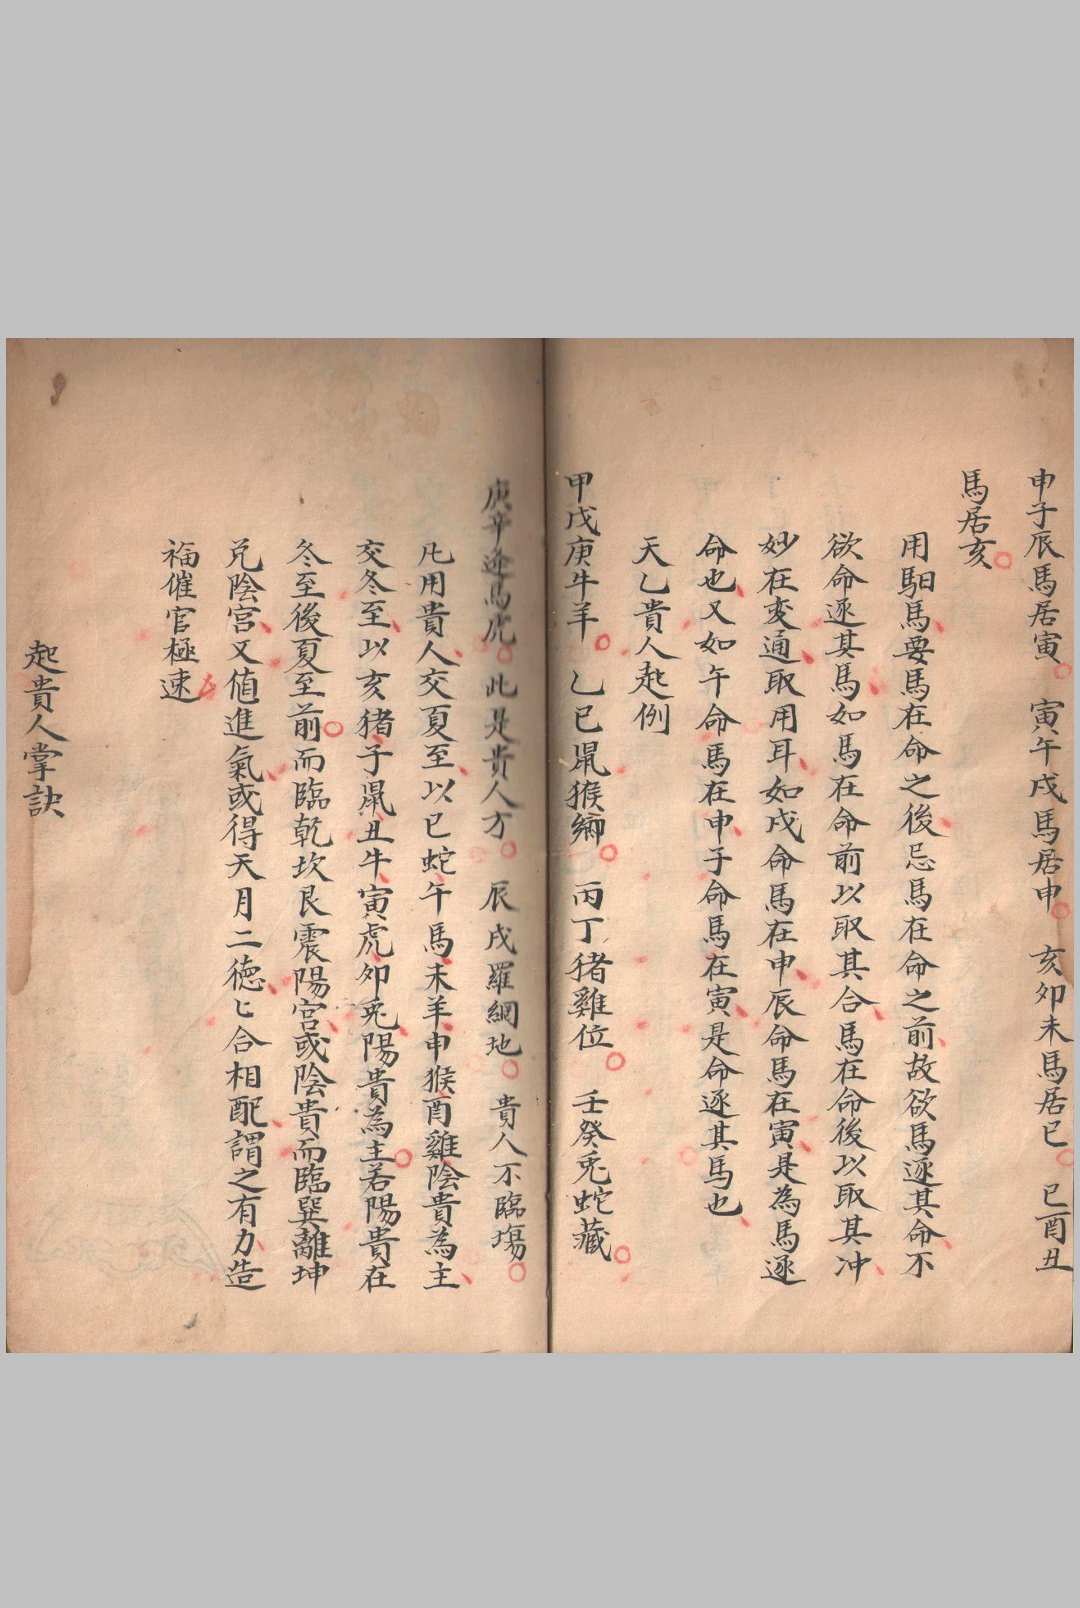 申子辰馬居寅 寅午戌馬居申 亥卯未馬居巳 巳酉丑
馬居亥
用馹馬要馬在命之後忌馬在命之前故欲馬逐其命不
欲命逐其馬如馬在命前以取其合馬在命後以取其冲
妙在変通取用耳如戌命馬在申辰命馬在寅是為馬逐
命也又如午命馬在申子命馬在寅是命逐其馬也
天乙貴人起例
甲戊庚牛羊 乙己鼠猴鄉 丙丁猪雞位 壬癸兎蛇藏
庚辛逢馬虎 此是貴人方 辰戌羅網地 貴人不臨塲
凡用貴人交夏至以巳蛇午馬未羊申猴酉雞陰貴為主
交冬至以亥猪子鼠丑牛寅虎卯兎陽貴為主若陽貴在
冬至後夏至前而臨乾坎艮震陽宮或陰貴而臨巽離坤
兌陰宮又值進氣或得天月二徳匕合相配謂之有力造
福催官極速
起貴人掌訣